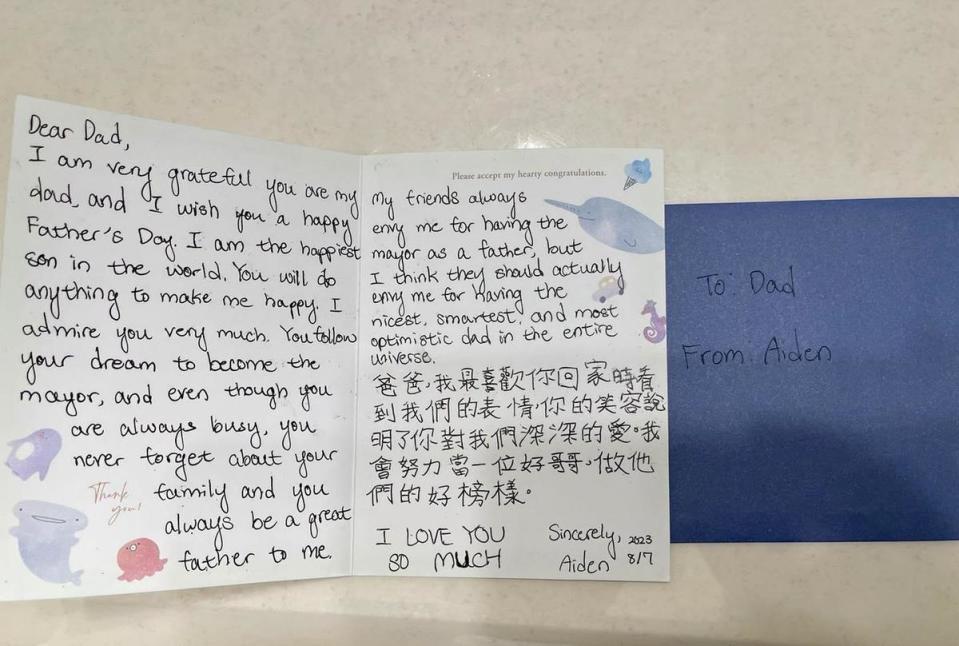 Dear Dad,
I am very grateful you are my
dad, and I wish you a happy
Father's Day. I am the happiest
son in the world. You will do
anything to make me happy. I
admire you very much. You follow
your dream to become the
mayor, and even though you
are always busy, you
never forget about your
family and you
always be a great
father to me.
Thank you!
Please accept my hearty congratulations.
My friends always
envy me for having the
mayor as a father, but
I think they should actually
envy me for having the
nicest, smartest, and most
optimistic dad in the entire
universe.
爸爸,我最喜歡你回家時看
到我們的表情,你的笑容說
明了你對我們深深的愛。我
會努力當一位好哥哥,做他
們的好榜樣。
I LOVE YOU
SO MUCH
Sincerely, 2023
Aiden 8/7
To: Dad
From: Aiden